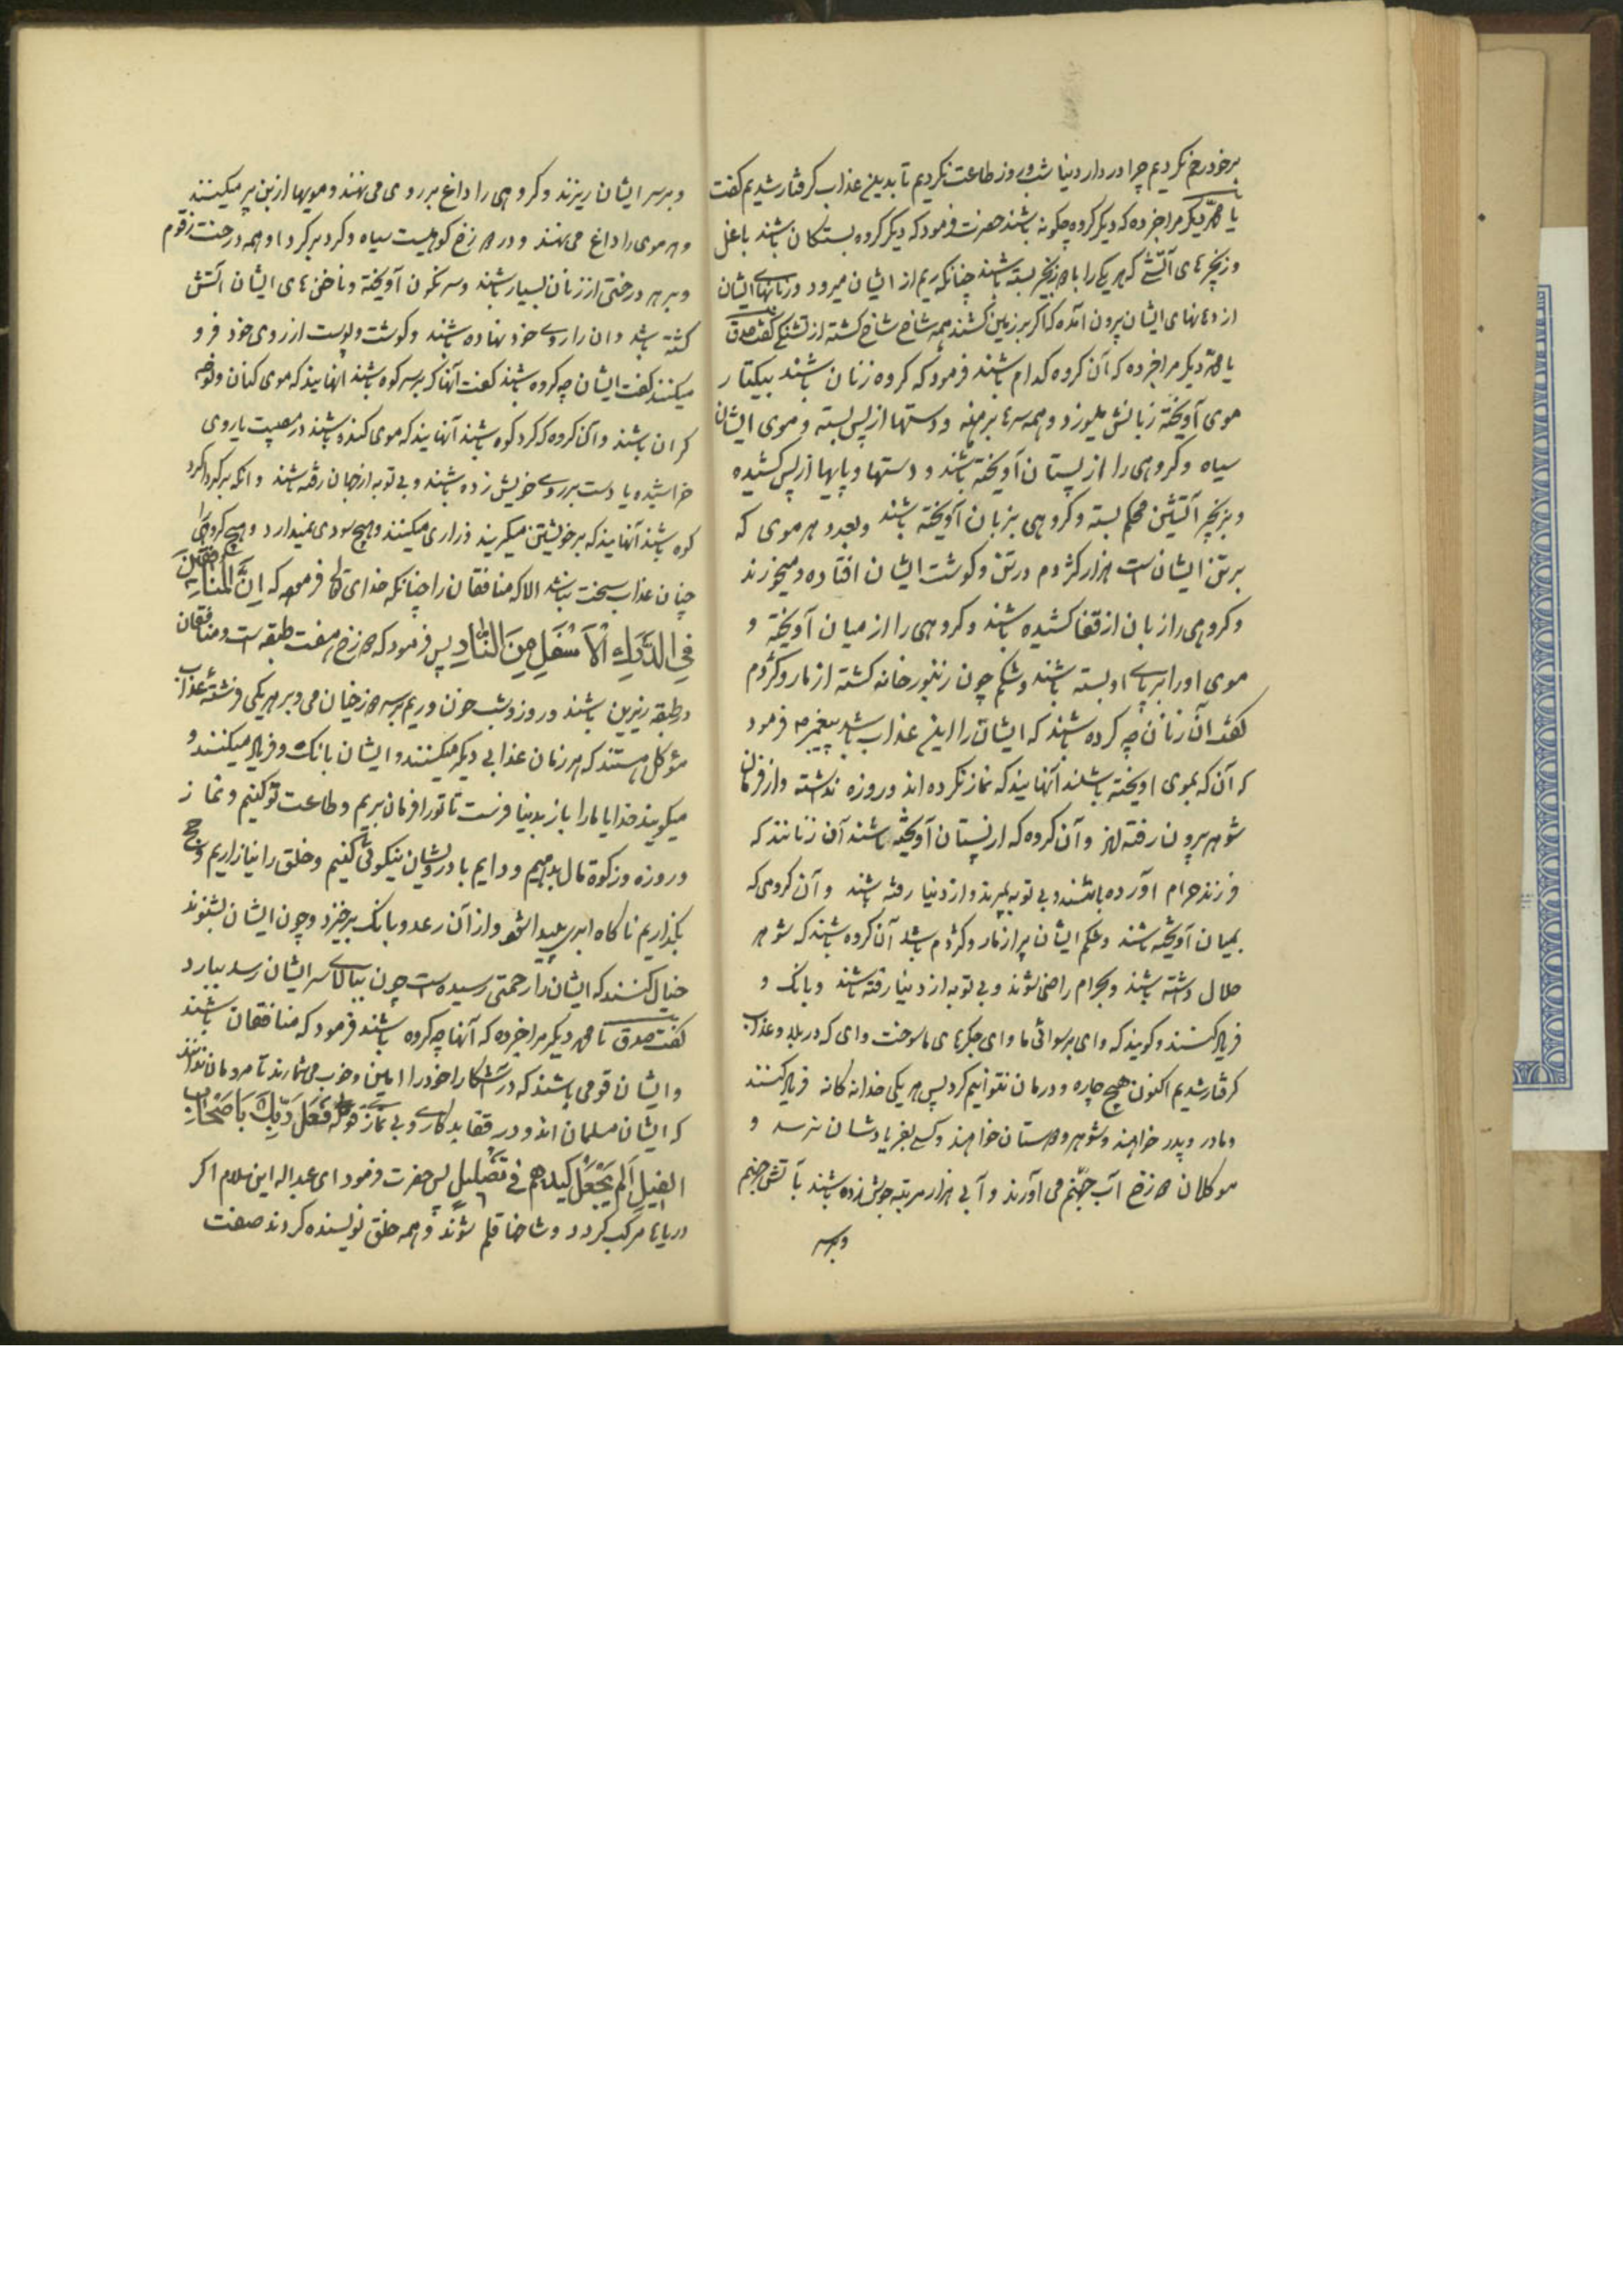 برخود رحم نکردیم چرا در دار دنیا شب و روز طاعت نکردیم تا بدین عذاب گرفتار شدیم گفت
یا محمد دیگر مرا خبر ده که دیگر گروه چگونه باشند حضرت فرمود که دیگر گروه بستگان باشند با غل
و زنجیرهای آتشی که هر یکی را با زنجیر بسته باشند چنانکه ریم از ایشان میرود و زبانهای ایشان
از دهانهای ایشان بیرون آمده که اگر بر زمین کشند همه شاخ شاخ گشته از تشنگی گفت صدقت
یا محمد دیگر مرا خبر ده که آن گروه کدام باشند فرمود که گروه زنان باشند بیکتار
موی آویخته زبانش میلرزد و همه سرها برهنه و دستها از پس بسته و موی ایشان
سیاه و گروهی را از پستان آویخته باشند و دستها و پایها از پس کشیده
و بزنجیر آتشین محکم بسته و گروهی بزبان آویخته باشند و بعدد هر موی که
بر تن ایشان است هزار کژدم در تن و گوشت ایشان افتاده و میخورند
و گروهی را زبان از قفا کشیده باشند و گروهی را از میان آویخته و
موی او را بر پای او بسته باشند و شکم چون زنبور خانه گشته از مار و کژدم
گفت آن زنان چه کرده باشند که ایشان را این عذاب باشد پیغمبر ص فرمود
که آن که بموی آویخته باشند آنهایند که نماز نکرده اند و روزه نداشته و از فرمان
شوهر بیرون رفته اند و آن گروه که از پستان آویخته باشند آن زنانند که
فرزند حرام آورده باشند و بی توبه بمیرند و از دنیا رفته باشند و آن گروهی که
بمیان آویخته باشند و شکم ایشان پر از مار و کژدم باشد آن گروه باشند که شوهر
حلال داشته باشند و بحرام راضی شوند و بی توبه از دنیا رفته باشند و بانک و
فریاد کنند و گویند که وای بر سوائی ما و ای جگرهای ما سوخت وای که در بلا و عذاب
گرفتار شدیم اکنون هیچ چاره و درمان نتوانیم کرد پس هر یکی جداگانه فریاد کنند
و مادر و پدر خواهند و شوهر و دوستان خواهند و کسی بفریادشان نرسد و
موکلان دوزخ آب جهنم می آورند و آبی هزار مرتبه جوش زده باشند بآتش جهنم
و بر سر
و بر سر ایشان ریزند و گروهی را داغ بر روی می نهند و مویها از بن بر میکنند
و هر موی را داغ می نهند و در دوزخ کوهیست سیاه و گرد بر گرد او همه درخت زقوم
و بر هر درختی از زنان بسیار باشند و سرنگون آویخته و ناخن های ایشان آتش
گشته باشد و آن را روی خود نهاده باشند و گوشت و پوست از روی خود فرو
میکنند گفت ایشان چه گروه باشند گفت آنها که بر سر کوه باشند آنهایند که موی کنان و نوحه
گران باشند و آن گروه که گرد کوه باشند آنهایند که موی کنده باشند در مصیبت یا روی
خراشیده یا دست بر روی خویش زده باشند و بی توبه از جهان رفته باشند و آنکه بر گرداگرد
کوه باشند آنهایند که بر خویشتن میگریند و زاری میکنند و هیچ سودی نمیدارد و هیچ گروهی را
چنان عذاب سخت نباشد الا که منافقان را چنانکه خدای تعالی فرموده که اِنَّ الْمُنَافِقِینَ
فِی الدَّرْكِ الْاَسْفَلِ مِنَ النَّارِ پس فرمود که دوزخ هفت طبقه است و منافقان
در طبقه زیرین باشند و روز و شب خون و ریم بر سر دوزخیان می و بر هر یکی فرشته عذاب
مؤکل هستند که هر زمان عذابی دیگر میکنند و ایشان بانک و فریاد میکنند و
میگویند خدایا ما را باز بدنیا فرست تا تو را فرمان بریم و طاعت تو کنیم و نماز
و روزه و زکوة مال بدهیم و دایم با درویشان نیکوئی کنیم و خلق را نیازاریم و حج
بگذاریم ناگاه ابری پیدا شود و از آن رعد و بانک برخیزد و چون ایشان بشنوند
خیال کنند که ایشان را رحمتی رسیده است چون ببالای سر ایشان رسد ببارد
گفت صدقت یا محمد دیگر مرا خبر ده که آنها چه گروه باشند فرمود که منافقان باشند
و ایشان قومی باشند که در آشکارا خود را امین و خوب می شمارند تا مردمان ندانند
که ایشان مسلمان اند و در قفا بدکاری و بی نمازی قوله فَعَلَ رَبُّكَ بِاَصْحَابِ
الْفِیلِ اَلَمْ یَجْعَلْ كَیْدَهُمْ فِی تَضْلِیلٍ پس حضرت فرمود ای عبداله ابن سلام اگر
دریاها مرکب گردد و شاخها قلم شوند و همه خلق نویسنده گردند صفت